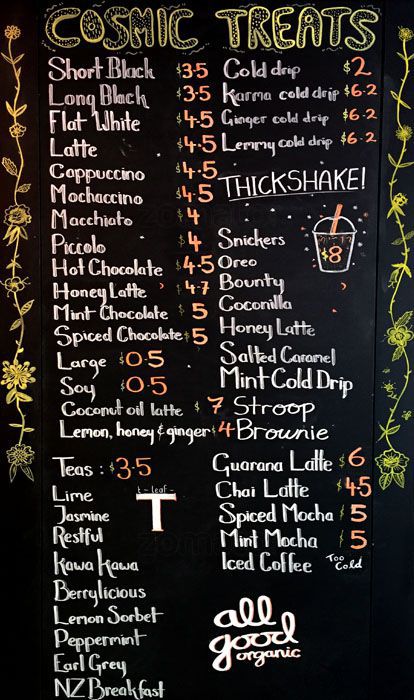 COSMIC TREATS
Short Black $3.5
Long Black $3.5
Flat White $4.5
Latte $4.5
Cappuccino $4.5
Mochaccino $4.5
Macchiato $4
Piccolo $4
Hot Chocolate $4.5
Honey Latte $4.7
Mint Chocolate $5
Spiced Chocolate $5
Large $0.5
Soy $0.5
Coconut oil latte $7
Lemon, honey & ginger $4
Teas: $3.5
t-leaf T
Lime
Jasmine
Restful
Kawa Kawa
Berrylicious
Lemon Sorbet
Peppermint
Earl Grey
NZ Breakfast
Cold drip $2
Karma cold drip $6.2
Ginger cold drip $6.2
Lemmy cold drip $6.2
THICKSHAKE!
$8
Snickers
Oreo
Bounty
Coconilla
Honey Latte
Salted Caramel
Mint Cold Drip
Stroop
Brownie
Guarana Latte $6
Chai Latte $4.5
Spiced Mocha $5
Mint Mocha $5
Iced Coffee Too Cold
all
good
organic